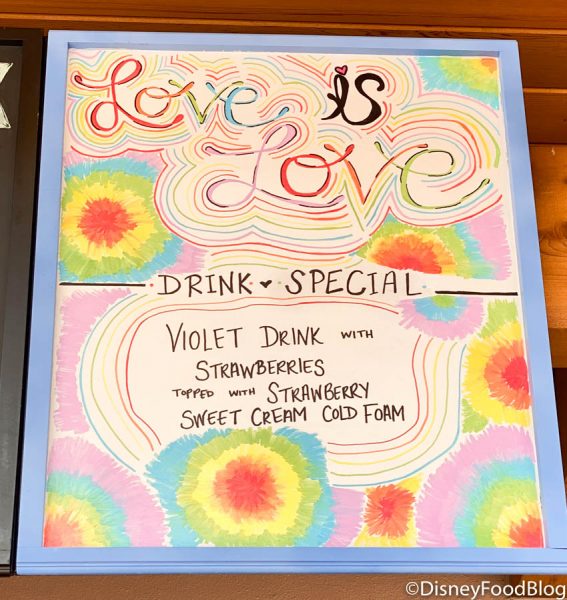 Love is
Love
DRINK ♥ SPECIAL
VIOLET DRINK WITH
STRAWBERRIES
TOPPED WITH STRAWBERRY
SWEET CREAM COLD FOAM
©DisneyFoodBlog